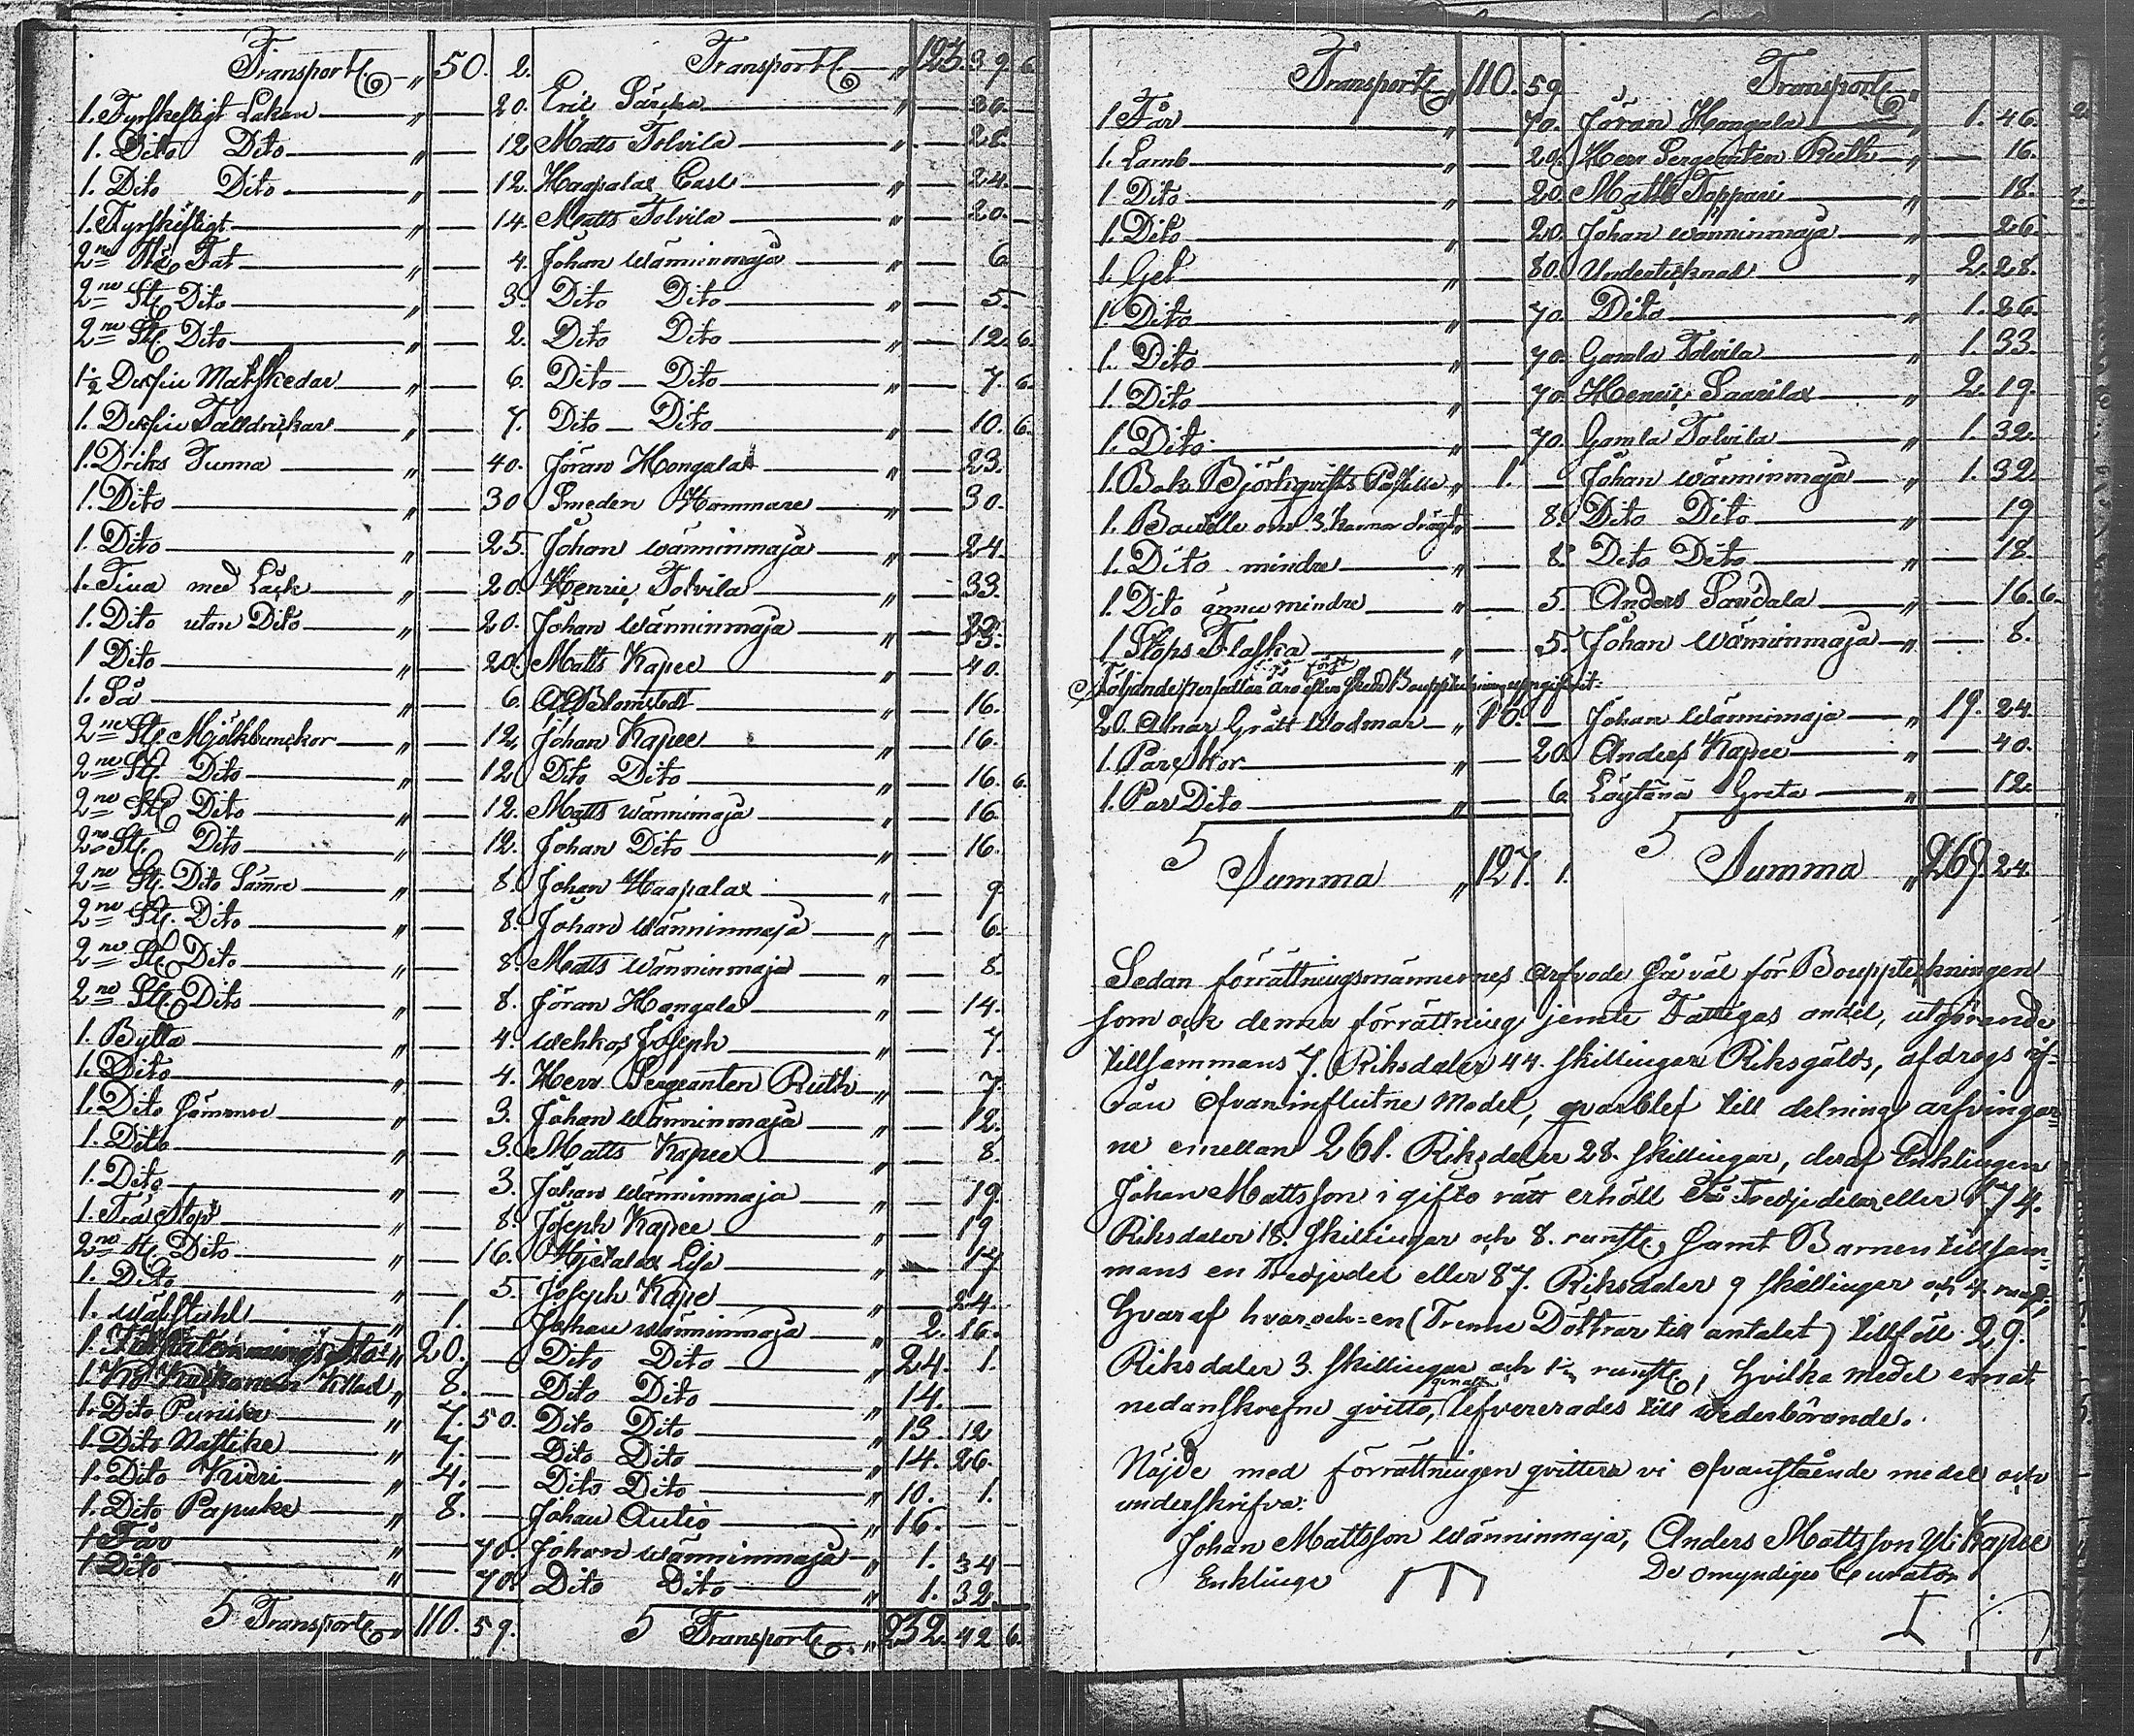 Transport „ 50. 2. Transport „ 123. 39. 6.
1. Fyrskeftigt Lakan „ — 20. Eric „ — 36. —
1. Dito Dito „ — 12 Matts Tolvila „ — 28.
1. Dito Dito „ — 12. Haapalax Carl „ — 24. —
1. Fyrskeftigt „ — 14. Matts Tolvila „ — 20. —
2ne St. Fat „ — 4. Johan Wänninmaja „ — 6
2ne St. Dito „ — 3. Dito Dito „ — 5.
2ne St. Dito „ — 2. Dito Dito „ — 12. 6.
1/2 Dussin Matskedar „ — 6. Dito — Dito „ — 7. 6.
1. Dussin Talldrickar „ — 7. Dito — Dito „ — 10. 6.
1. Driks Tunna „ — 40. Jöran Hongala „ — 23.
1. Dito „ — 30 Smeden Hammare „ — 30.
1. Dito „ — 25. Johan Wänninmaja „ — 24.
1. Tina med Låck „ — 20. Henric Tolvila „ — 33.
1. Dito utan Dito „ — 20. Johan Wänninmaja „ — 33.
1 Dito „ — 20. Matts Kapee „ — 40.
1. Så „ — 6. Blomstedt „ — 16.
2ne St. Mjölkbunckor „ — 12. Johan Kapee „ — 16.
2ne St. Dito „ — 12. Dito Dito „ — 16. 6.
2ne St. Dito „ — 12. Matts Wänninmaja „ — 16.
2ne St. Dito „ — 12. Johan Dito „ — 16.
2ne St. Dito Sämre „ — 8. Johan Haapalax „ — 9
2ne St. Dito „ — 8. Johan Wänninmaja „ — 6.
2ne St. Dito „ — 8. Matts Wänninmaja „ — 8.
2ne St. Dito „ — 8. Jöran Hongala „ — 14.
1. Bytta „ — 4. Wehkas Joseph „ — 7.
1. Dito „ — 4. Herr Sergeanten Ruth „ — 7.
1. Dito Sämmre „ — 3. Johan Wänninmaja „ — 12.
1. Dito „ — 3. Matts Kapee „ — 8.
1. Dito „ — 3. Johan Wänninmaja „ — 19.
1. Trä Stop „ — 8. Joseph Kapee „ — 19
2ne St. Dito „ — 16. Lisa „ — 17
1. Dito „ — 5. Joseph Kape „ — 24.
1. Wäfstuhl „ 1. — Johan Wänninmaja „ 2. 16.
1. „ 20. — Dito Dito „ 24. 1.
1. Ko „ 8. — Dito Dito „ 14. —
1. Dito Punika „ 7. 50. Dito Dito „ 13. 12
1. Dito Nastike „ 7. — Dito Dito „ 14. 26.
1. Dito Kirri „ 4. — Dito Dito „ 10. 1.
1. Dito Papuke „ 8. — Johan Autio „ 16. —
1 Får „ — 70. Johan Wänninmaja „ 1. 34
1 Dito „ — 70. Dito Dito „ 1. 32.
S Transport „ 110. 59. S Transport „ 232. 42 6.
Transport „ 110. 59 Transport „
1 Får „ — 70. Jöran Hongala „ 1. 46.
1. Lamb „ — 20. Herr Sergeanten Ruth „ — 16.
1. Dito „ — 20. Matts Toppari „ — 18.
1. Dito „ — 20. Johan Wänninmaja „ — 26.
1. Get „ — 80. Undertecknad „ 2. 28.
1. Dito „ — 70. Dito „ 1. 26.
1. Dito „ — 70. Gamla Tolvila „ 1. 33.
1. Dito „ — 70. Henric Saarilax „ 2. 19.
1. Dito „ — 70. Gamla Tolvila „ 1. 32.
1. Bok Björkqvists Postilla „ 1. — Johan Wänninmaja „ 1. 32.
1. Boutelle om 3. kannor drägt „ — 8. Dito Dito „ — 19
1. Dito mindre „ — 8. Dito Dito „ — 18.
1. Dito ännu mindre „ — 5. Anders Sandala „ — 16. 6.
1 Stops Flaska „ — 5. Johan Wänninmaja „ — 8.
Följande äro först efter skedd Boupptekning upgifvit:
20. Alnar Grått Wadmar „ 10. — Johan Wänninmaja „ 19. 24
1. Par Skor „ — 20. Anders Kapee „ — 40.
1. Par Dito „ — 6. Löytänä Greta „ — 12.
S Summa „ 127. 1. S Summa „ 269. 24.
Sedan förrättningsmännernes arfvode så väl för Bouppteckningen
som ock denna förrättning jemte Fattigas andel, utgörande
tillsammans 7. Riksdaler 44. skillingar Riksgälds, afdrogs if=
rån ofvaninflutne medel, qvarblef till delning arfvingar=
ne emellan 261. Riksdaler 28. skillingar, deraf Enklingen
Johan Mattsson i gifto rätt erhöll Två Tredjedelar eller 174.
Riksdaler 18. skillingar och 8. runst. samt Barnen tillsam=
mans en Tredjedel eller 87. Riksdaler 9 skillingar och 4. runst.;
hvaraf hvar=och=en (Trenne Döttrar till antalet) tillföll 29.
Riksdaler 3. skillingar och runst., hvilka medel emot
nedanskrefne qvitto, genast lefvererades till wederbörande.
Nöjde med förrättningen qvittera vi ofvanstående medel och
underskrifva:
Johan Mattsson Wänninmaja, Anders Mattsson Yli Kapee
Enklinge De omyndiges Curator